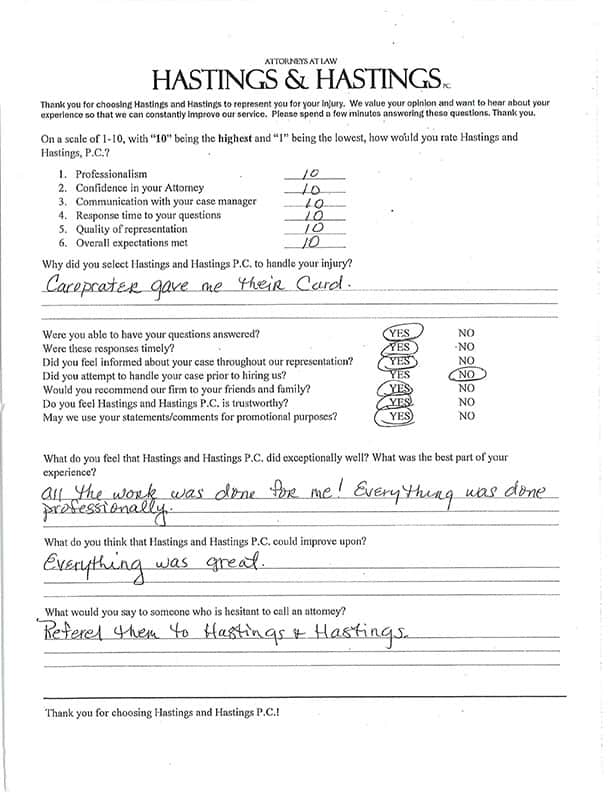 ATTORNEYS AT LAW
HASTINGS & HASTINGS PC
Thank you for choosing Hastings and Hastings to represent you for your injury. We value your opinion and want to hear about your
experience so that we can constantly improve our service. Please spend a few minutes answering these questions. Thank you.
On a scale of 1-10, with "10" being the highest and "1" being the lowest, how would you rate Hastings and
Hastings, P.C.?
1. Professionalism 10
2. Confidence in your Attorney 10
3. Communication with your case manager 10
4. Response time to your questions 10
5. Quality of representation 10
6. Overall expectations met 10
Why did you select Hastings and Hastings P.C. to handle your injury?
Caroprater gave me their Card.
Were you able to have your questions answered? YES NO
Were these responses timely? YES NO
Did you feel informed about your case throughout our representation? YES NO
Did you attempt to handle your case prior to hiring us? YES NO
Would you recommend our firm to your friends and family? YES NO
Do you feel Hastings and Hastings P.C. is trustworthy? YES NO
May we use your statements/comments for promotional purposes? YES NO
What do you feel that Hastings and Hastings P.C. did exceptionally well? What was the best part of your
experience?
All the work was done for me! Everything was done
professionally.
What do you think that Hastings and Hastings P.C. could improve upon?
Everything was great.
What would you say to someone who is hesitant to call an attorney?
Referel them to Hastings & Hastings.
Thank you for choosing Hastings and Hastings P.C.!